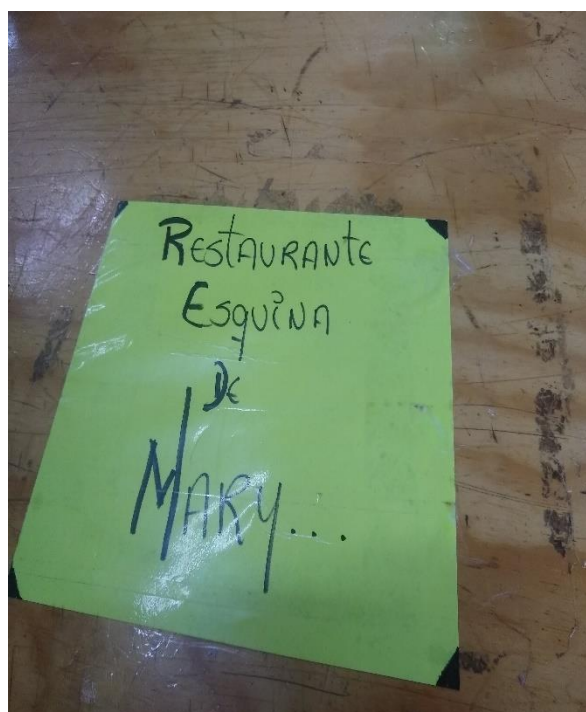 RESTAURANTE
ESQUINA
DE
MARY...